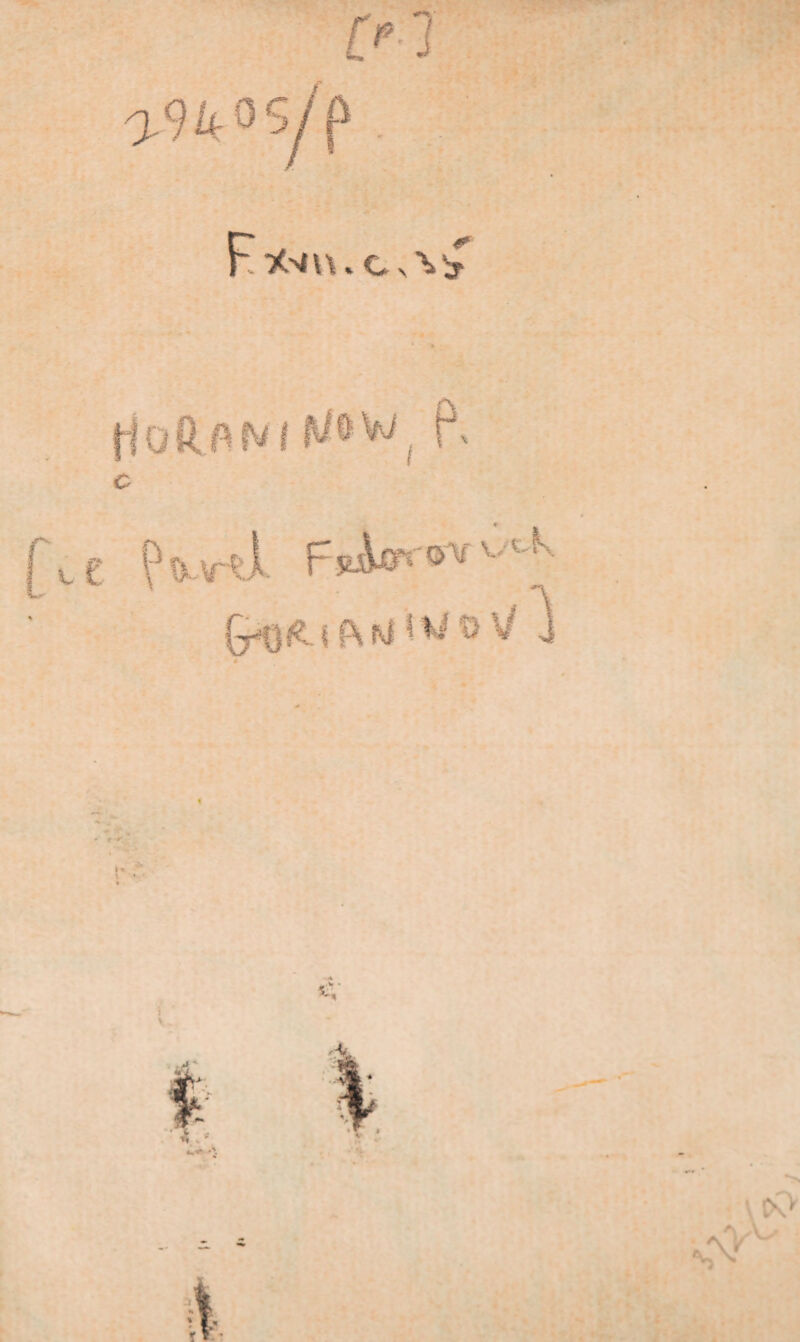 [P.]
29405/P
F. XVII. c. 15
HORANINOW, P.
c
[i.e Pavel Fedorovich
GORIANINOV]